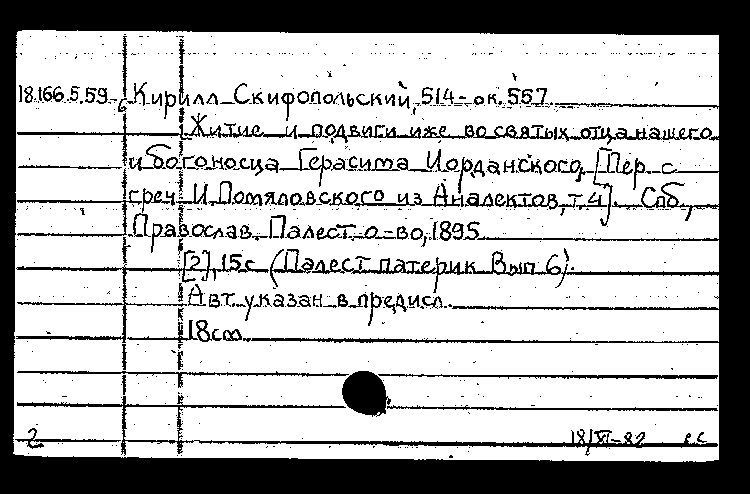 18.166.5.59 6 Кирилл Скифопольский, 514 - ок. 557
Житие и подвиги иже во святых отца нашего
и богоносца Герасима Иорданского, [Пер. с
греч. И. Помяловского из Аналектов, т. 4]. Спб.,
Православ. Палест. о-во, 1895
[2], 15с. (Палест. патерик Вып. 6).
Авт. указан в предисл.
18см
2 18/XI-82 ес